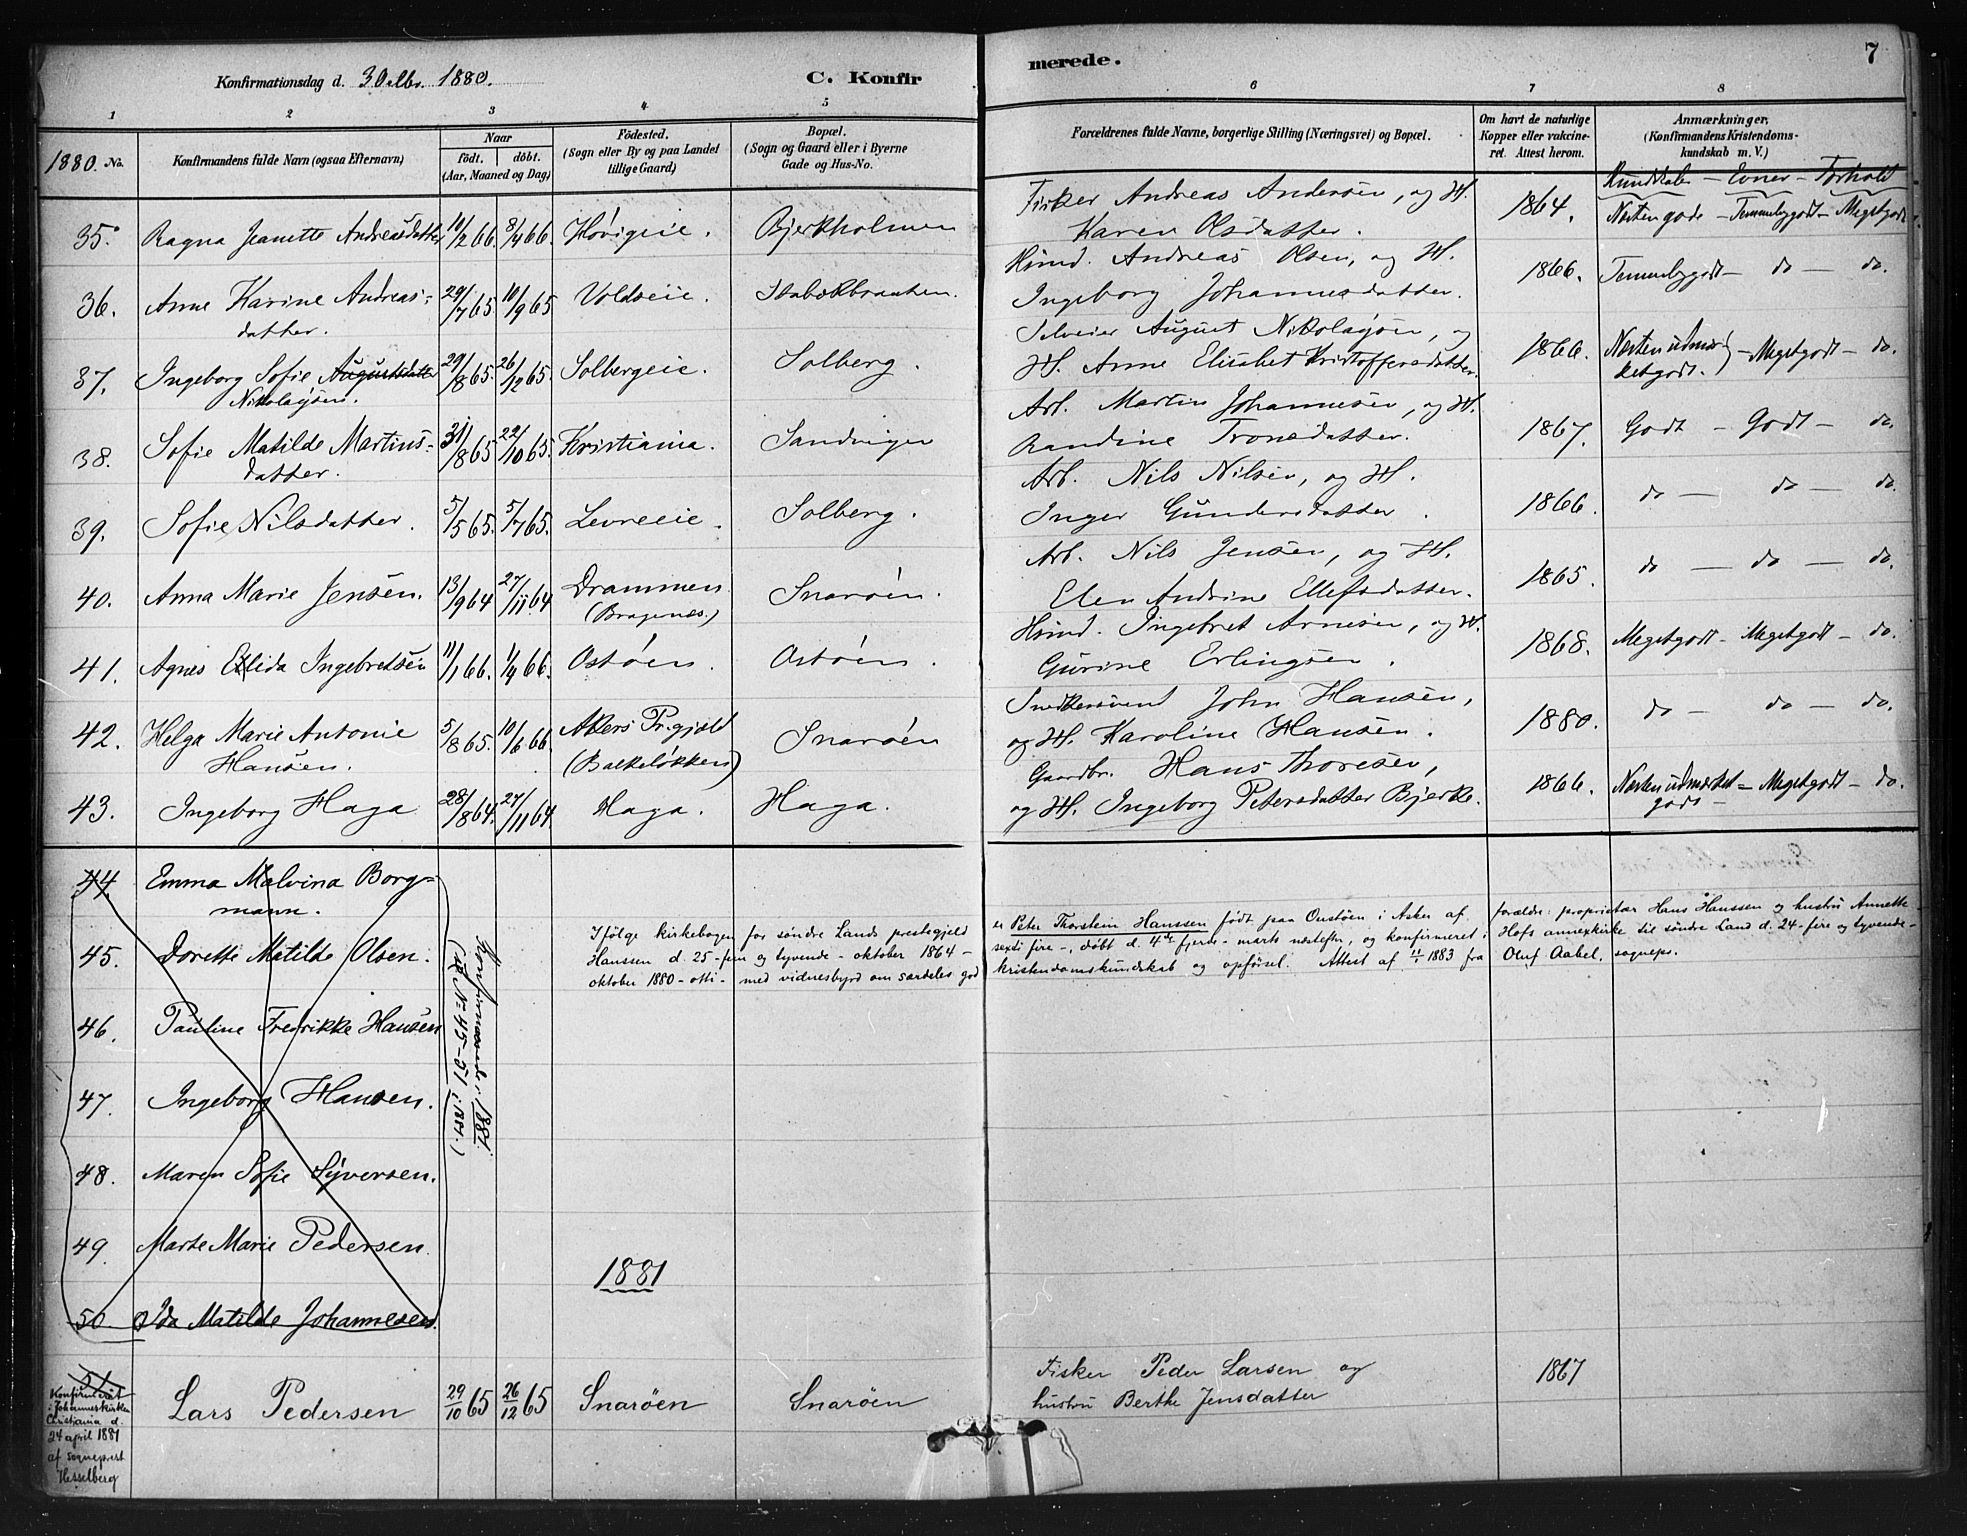 Konfirmationsdag d. 3 Oktbr. 1880.
C. Konfirmerede.
7
1 2 3 4 5 6 7 8
1880. No.
Konfirmandens fulde Navn (ogsaa Efternavn)
Naar
født. døbt.
(Aar, Maaned og Dag)
Fødested.
(Sogn eller By og paa Landet
tillige Gaard)
Bopæl.
(Sogn og Gaard eller i Byerne
Gade og Hus-No.
Forældrenes fulde Navne, borgerlige Stilling (Næringsvei) og Bopæl.
Om havt de naturlige
Kopper eller vakcine-
ret. Attest herom.
Anmærkninger,
(Konfirmandens Kristendoms-
kundskab m. V.)
Kundskaber – Evner – Forhold
35. Ragna Jeanette Andreasdatter 11/2 66. 8/4 66. Hövigeie. Bjerkholmen Fisker Andreas Andersen, og H. 1864. Næsten gode – Temmeligodt – Megetgodt
Karen Olsdatter.
36. Anne Karine Andreas- 29/7 65 10/9 65 Voldseie. Stabækbraaten. Husmd. Andreas Olsen, og H. 1866. Temmeligodt – do – do.
datter. Ingeborg Johannesdatter.
37. Ingeborg Sofie Augustdatter 29/8 65. 26/12 65. Solbergeie. Solberg. Selveier August Nikolaysen, og 1866. Næsten udmær- – Megetgodt – do.
Nikolaysen. H. Anne Elisabet Kristoffersdatter. ketgodt.
38. Sofie Matilde Martins- 31/8 65 22/10 65. Kristiania. Sandvigen Arb. Martin Johannesen, og H. 1867. Godt – Godt – do.
datter. Randine Tronsdatter.
39. Sofie Nilsdatter. 5/5 65. 5/7 65. Levreeie. Solberg. Arb. Nils Nilsen, og H. 1866. do – do – do.
Inger Gundersdatter.
40. Anna Marie Jensen. 13/9 64 27/11 64 Drammen Snaröen. Arb. Nils Jensen, og H. 1865. do – do – do.
(Bragenæs.) Elen Andrine Ellefsdatter.
41. Agnes Elida Ingebretsen 11/1 66. 1/4 66. Ostöen. Ostöen. Husmd. Ingebret Arnesen, og H. 1868. Megetgodt – Megetgodt – do.
Gurine Erlingsen.
42. Helga Marie Antonie 5/8 65. 10/6 66. Akers Prgjeld Snaröen Snedkersvend John Hansen, 1880. do – do – do.
Hansen. (Bakkeløkken) og H. Karoline Hansen.
43. Ingeborg Haga 28/8 64. 27/11 64. Haga. Haga. Gaardbr. Hans Thoresen, 1866. Næsten udmærket – Megetgodt – do.
og H. Ingeborg Petersdatter Bjerke. godt –
44. Emma Malvina Borg-
mann.
45. Dorette Matilde Olsen.
46. Pauline Fredrikke Hansen
47. Ingeborg Hansen.
48. Maren Sofie Syversen.
49. Marte Marie Pedersen.
50. Ida Matilde Johannesen.
Konfirmerede i 1881.
(cf. No 45-51 i 1881.)
Ifølge kirkebogen for søndre Lands prestegjeld er Peter Thorstein Hanssen født paa Oustøen i Asker af forældre: proprietær Hans Hanssen og hustru Annette
Hanssen d. 25 - fem og tyvende - oktober 1864 - sexti fire -, døbt d. 4de fjerde - marts næstefter, og konfirmeret i Hofs annexkirke til søndre Land d. 24 - fire og tyvende -
oktober 1880 - otti - med vidnesbyrd om særdeles god kristendomskundskab og opførsel. Attest af 11/1 1883 fra Oluf Aabel, sognepr.
1881
51.
Konfirmeret
i Johanneskirken
Christiania d.
24 april 1881
af sogneprest
Hesselberg
Lars Pedersen 29/10 65 26/12 65 Snarøen Snarøen Fisker Peder Larsen og 1867
hustru Berthe Jensdatter